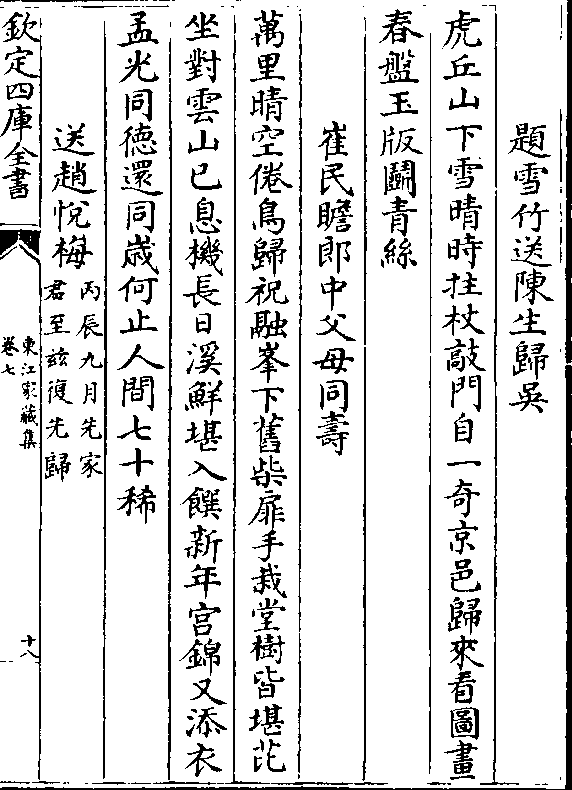 題雪竹送陳生歸吳
虎丘山下雪晴時拄杖敲門自一奇京邑歸來看圖畫
春盤玉版鬭青絲
崔民瞻郎中父母同壽
萬里晴空倦鳥歸祝融峯下舊柴扉手栽堂樹皆堪芘
坐對雲山已息機長日溪鮮堪入饌新年宫錦又添衣
孟光同德還同歳何止人間七十稀
送趙悅梅丙辰九月先家
君至兹復先歸
欽定四庫全書
東江家藏集
卷七
十八